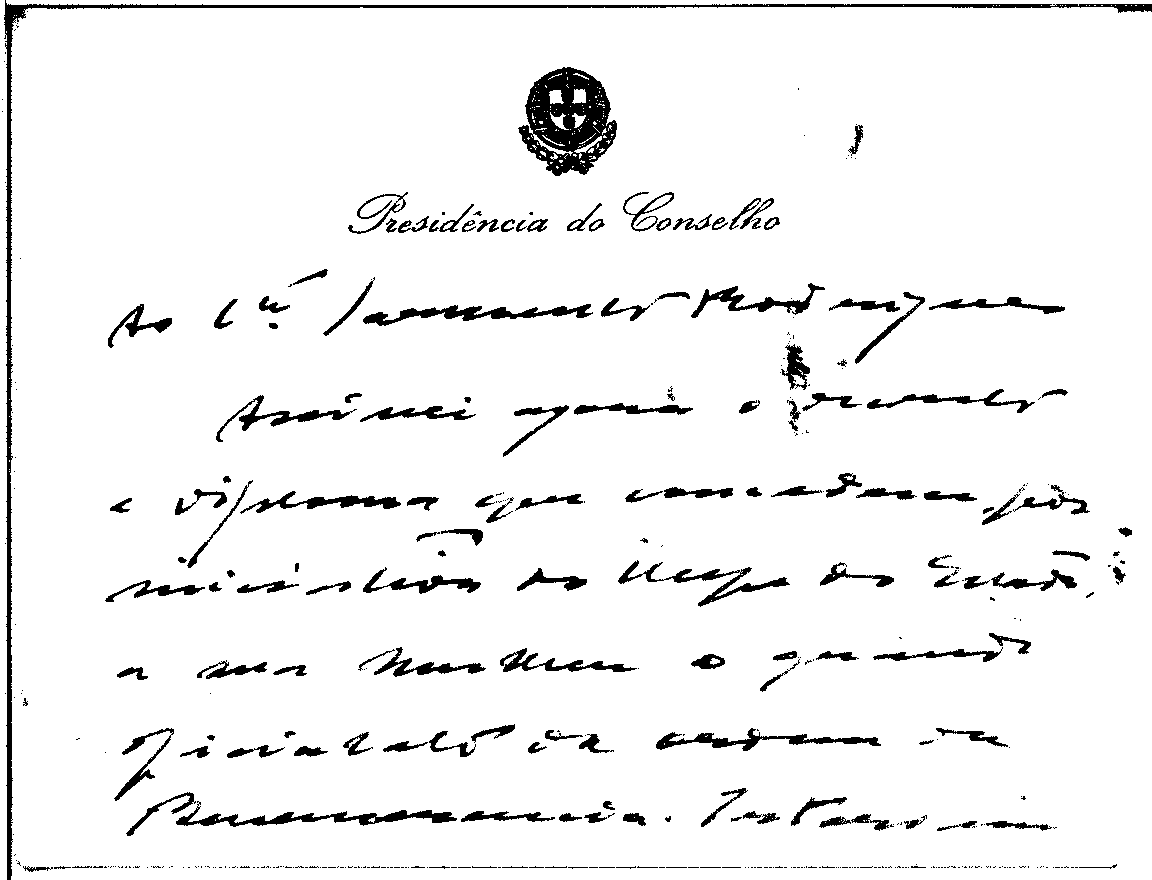 Presidência do Conselho
Ao Rodrigues
Assinei agora o decreto
e diploma que concedem, por
iniciativa do Chefe do Estado,
a sua mulher o grande
oficialato da ordem de
Benemerencia.